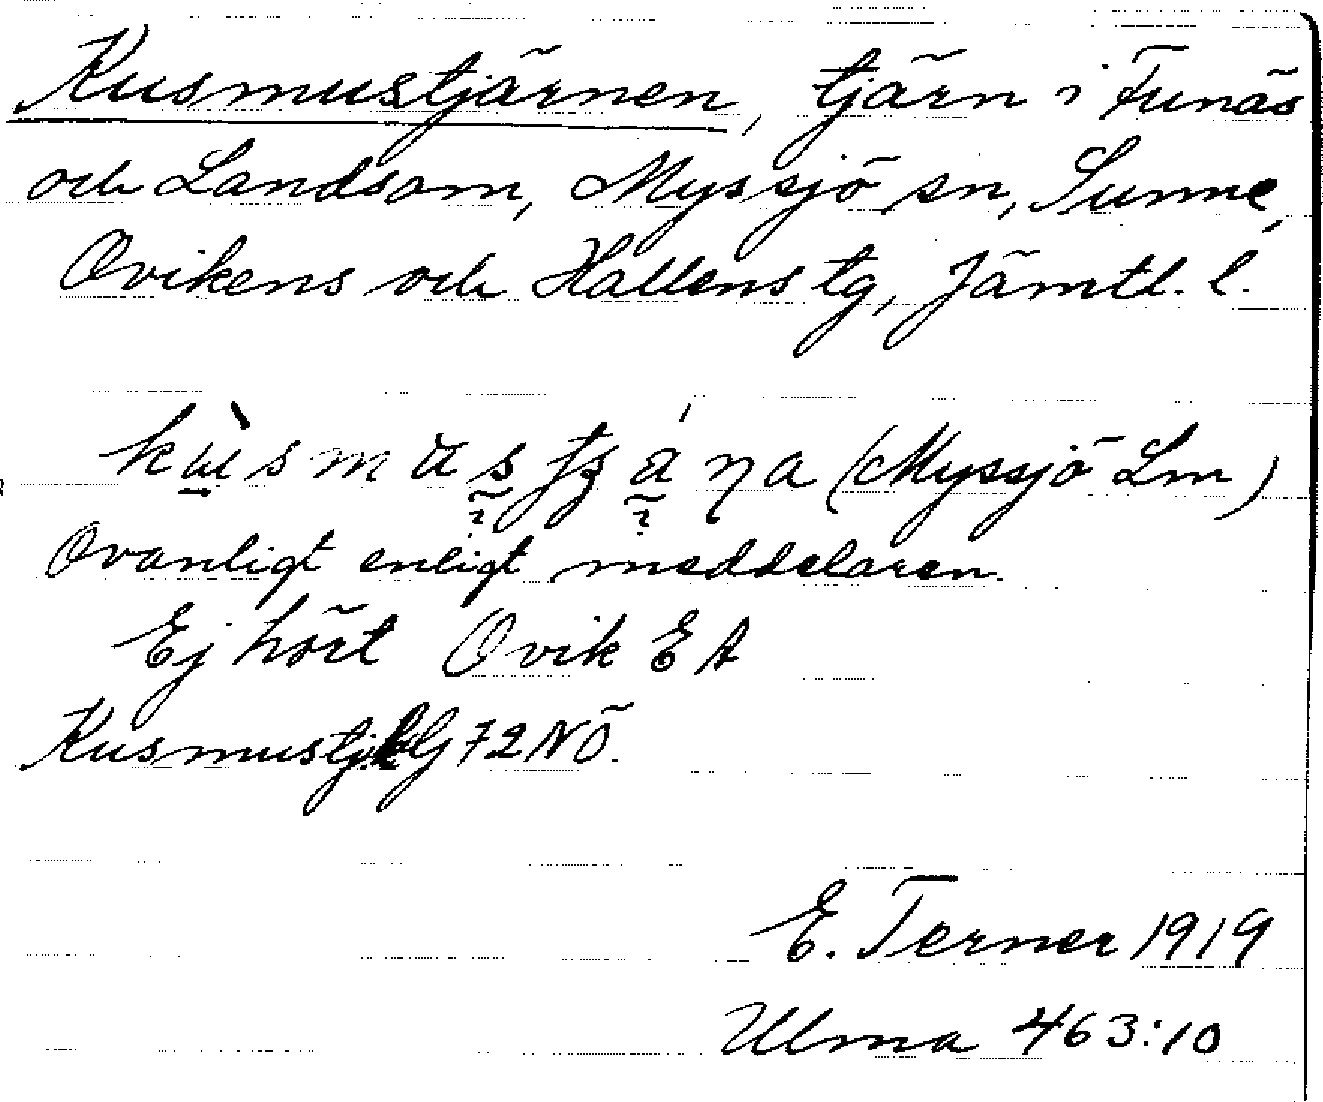 Kusmustjärnen, tjärn i Funäs
och Landsom, Myssjö sn, Sunne,
Ovikens och Hallens tg, Jämtl. l.
(Myssjö Lm)
Ovanligt enligt meddelaren.
Ej hört Ovik E A
Kusmustj. 72 NÖ.
E. Terner 1919
Ulma 463:10